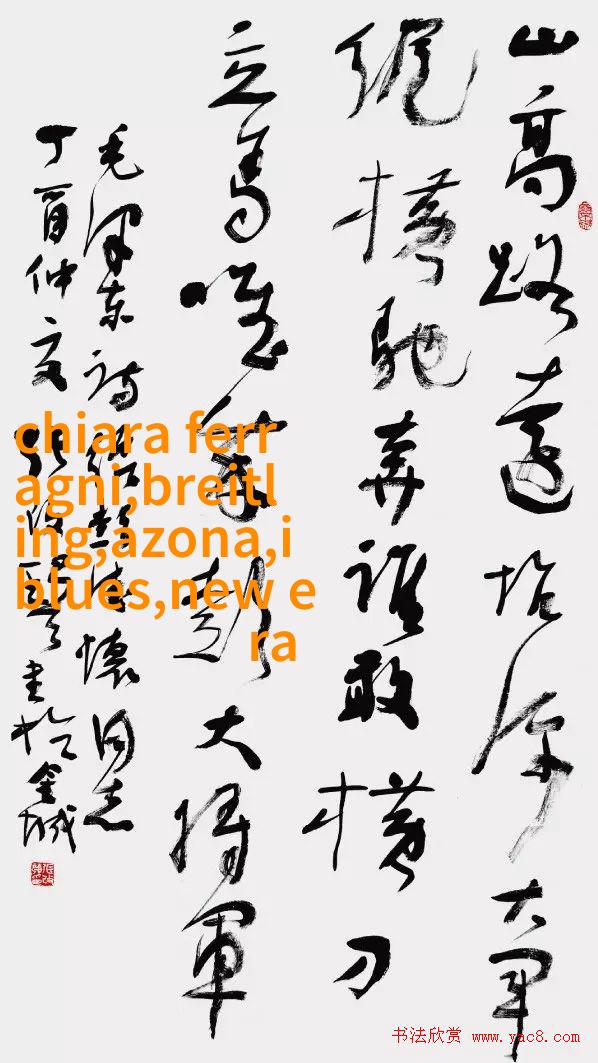 山高路遠坑深大军
縱橫馳奔誰敢橫刀
立馬唯我彭大將軍
毛泽东诗給彭德懷同志
丁酉仲夏張改琴书於金城
chiara ferr
agni,breitl
ing,azona,i
blues,new e
ra
书法欣赏 www.yac8.com